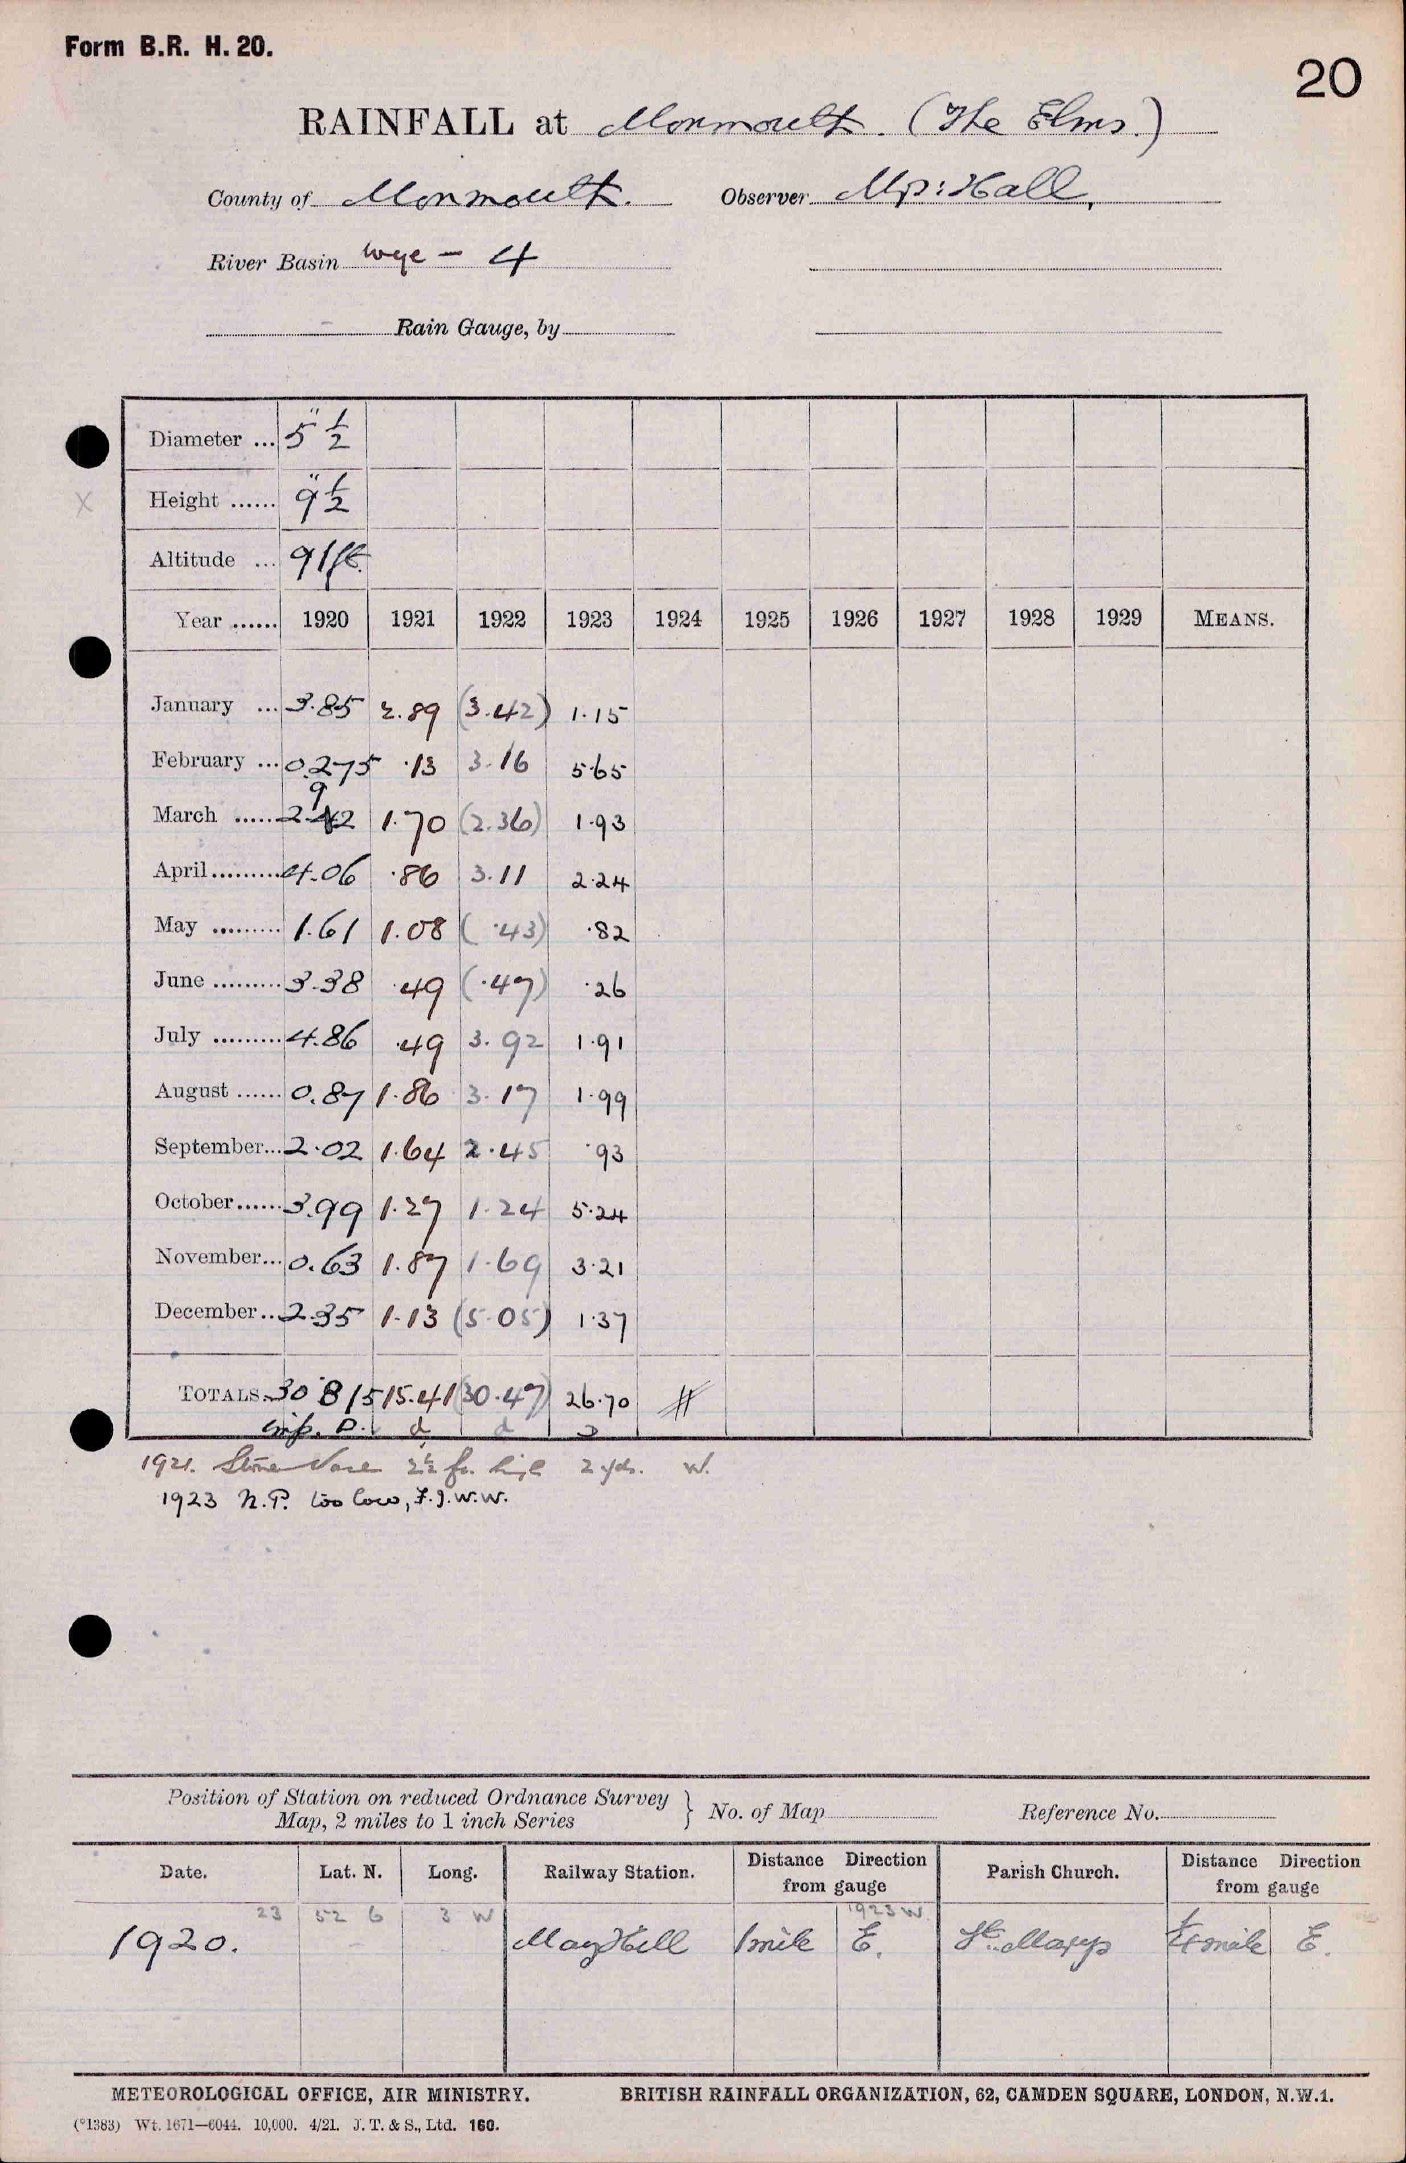 Form B.R. H. 20.
20
RAINFALL at Monmouth. (The Elms.)
County of Monmouth. Observer Mrs: Hall,
River Basin Wye - 4
Rain Gauge, by
Diameter ... 5"½
Height ...... 9"½
X
Altitude ... 91ft.
Year ...... 1920 1921 1922 1923 1924 1925 1926 1927 1928 1929 MEANS.
January ... 3.85 2.89 (3.42) 1.15
February ... 0.275 .13 3.16 5.65
March ..... 2.92 1.70 (2.36) 1.93
April ......... 4.06 .86 3.11 2.24
May ......... 1.61 1.08 (.43) .82
June ......... 3.38 .49 (.47) .26
July ......... 4.86 .49 3.92 1.91
August ...... 0.87 1.86 3.17 1.99
September... 2.02 1.64 2.45 .93
October...... 3.99 1.27 1.24 5.24
November... 0.63 1.87 1.69 3.21
December... 2.35 1.13 (5.05) 1.37
TOTALS.. 30.815 15.41 (30.47) 26.70 #
imp. D. d d
1921. Stone Vase 2½ ft. high 2 yds. W.
1923 N.P. too low, F.J.W.W.
Position of Station on reduced Ordnance Survey Map, 2 miles to 1 inch Series } No. of Map Reference No.
Date. Lat. N. Long. Railway Station. Distance Direction from gauge Parish Church. Distance Direction from gauge
23 52 6 3 W 1923 W.
1920. May Hill 1 mile E. St. Marys ¼ mile E.
METEOROLOGICAL OFFICE, AIR MINISTRY. BRITISH RAINFALL ORGANIZATION, 62, CAMDEN SQUARE, LONDON, N.W.1.
(*1383) Wt. 1671—6044. 10,000. 4/21. J. T. & S., Ltd. 160.